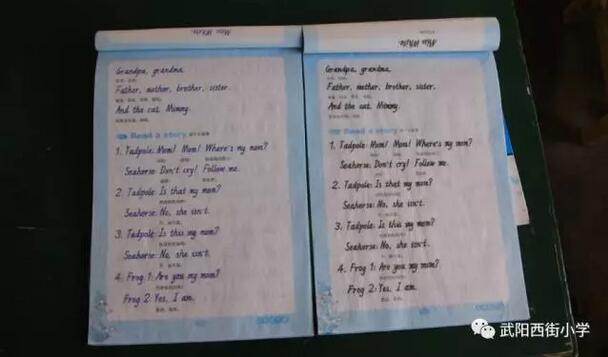 Miss White.
Grandpa, grandma,
Father, mother, brother, sister.
And the cat. Mimmy.
Read a story
1. Tadpole: Mom! Mom! Where's my mom?
Seahorse: Don't cry! Follow me.
2. Tadpole: Is that my mom?
Seahorse: No, she isn't.
3. Tadpole: Is this my mom?
Seahorse: No, she isn't.
4. Frog 1: Are you my mom?
Frog 2: Yes, I am.
Miss White.
Grandpa, grandma,
Father, mother, brother, sister.
And the cat. Mimmy.
Read a story
1. Tadpole: Mom! Mom! Where's my mom?
Seahorse: Don't cry! Follow me.
2. Tadpole: Is that my mom?
Seahorse: No, she isn't.
3. Tadpole: Is this my mom?
Seahorse: No, she isn't.
4. Frog 1: Are you my mom?
Frog 2: Yes, I am.
武阳西街小学